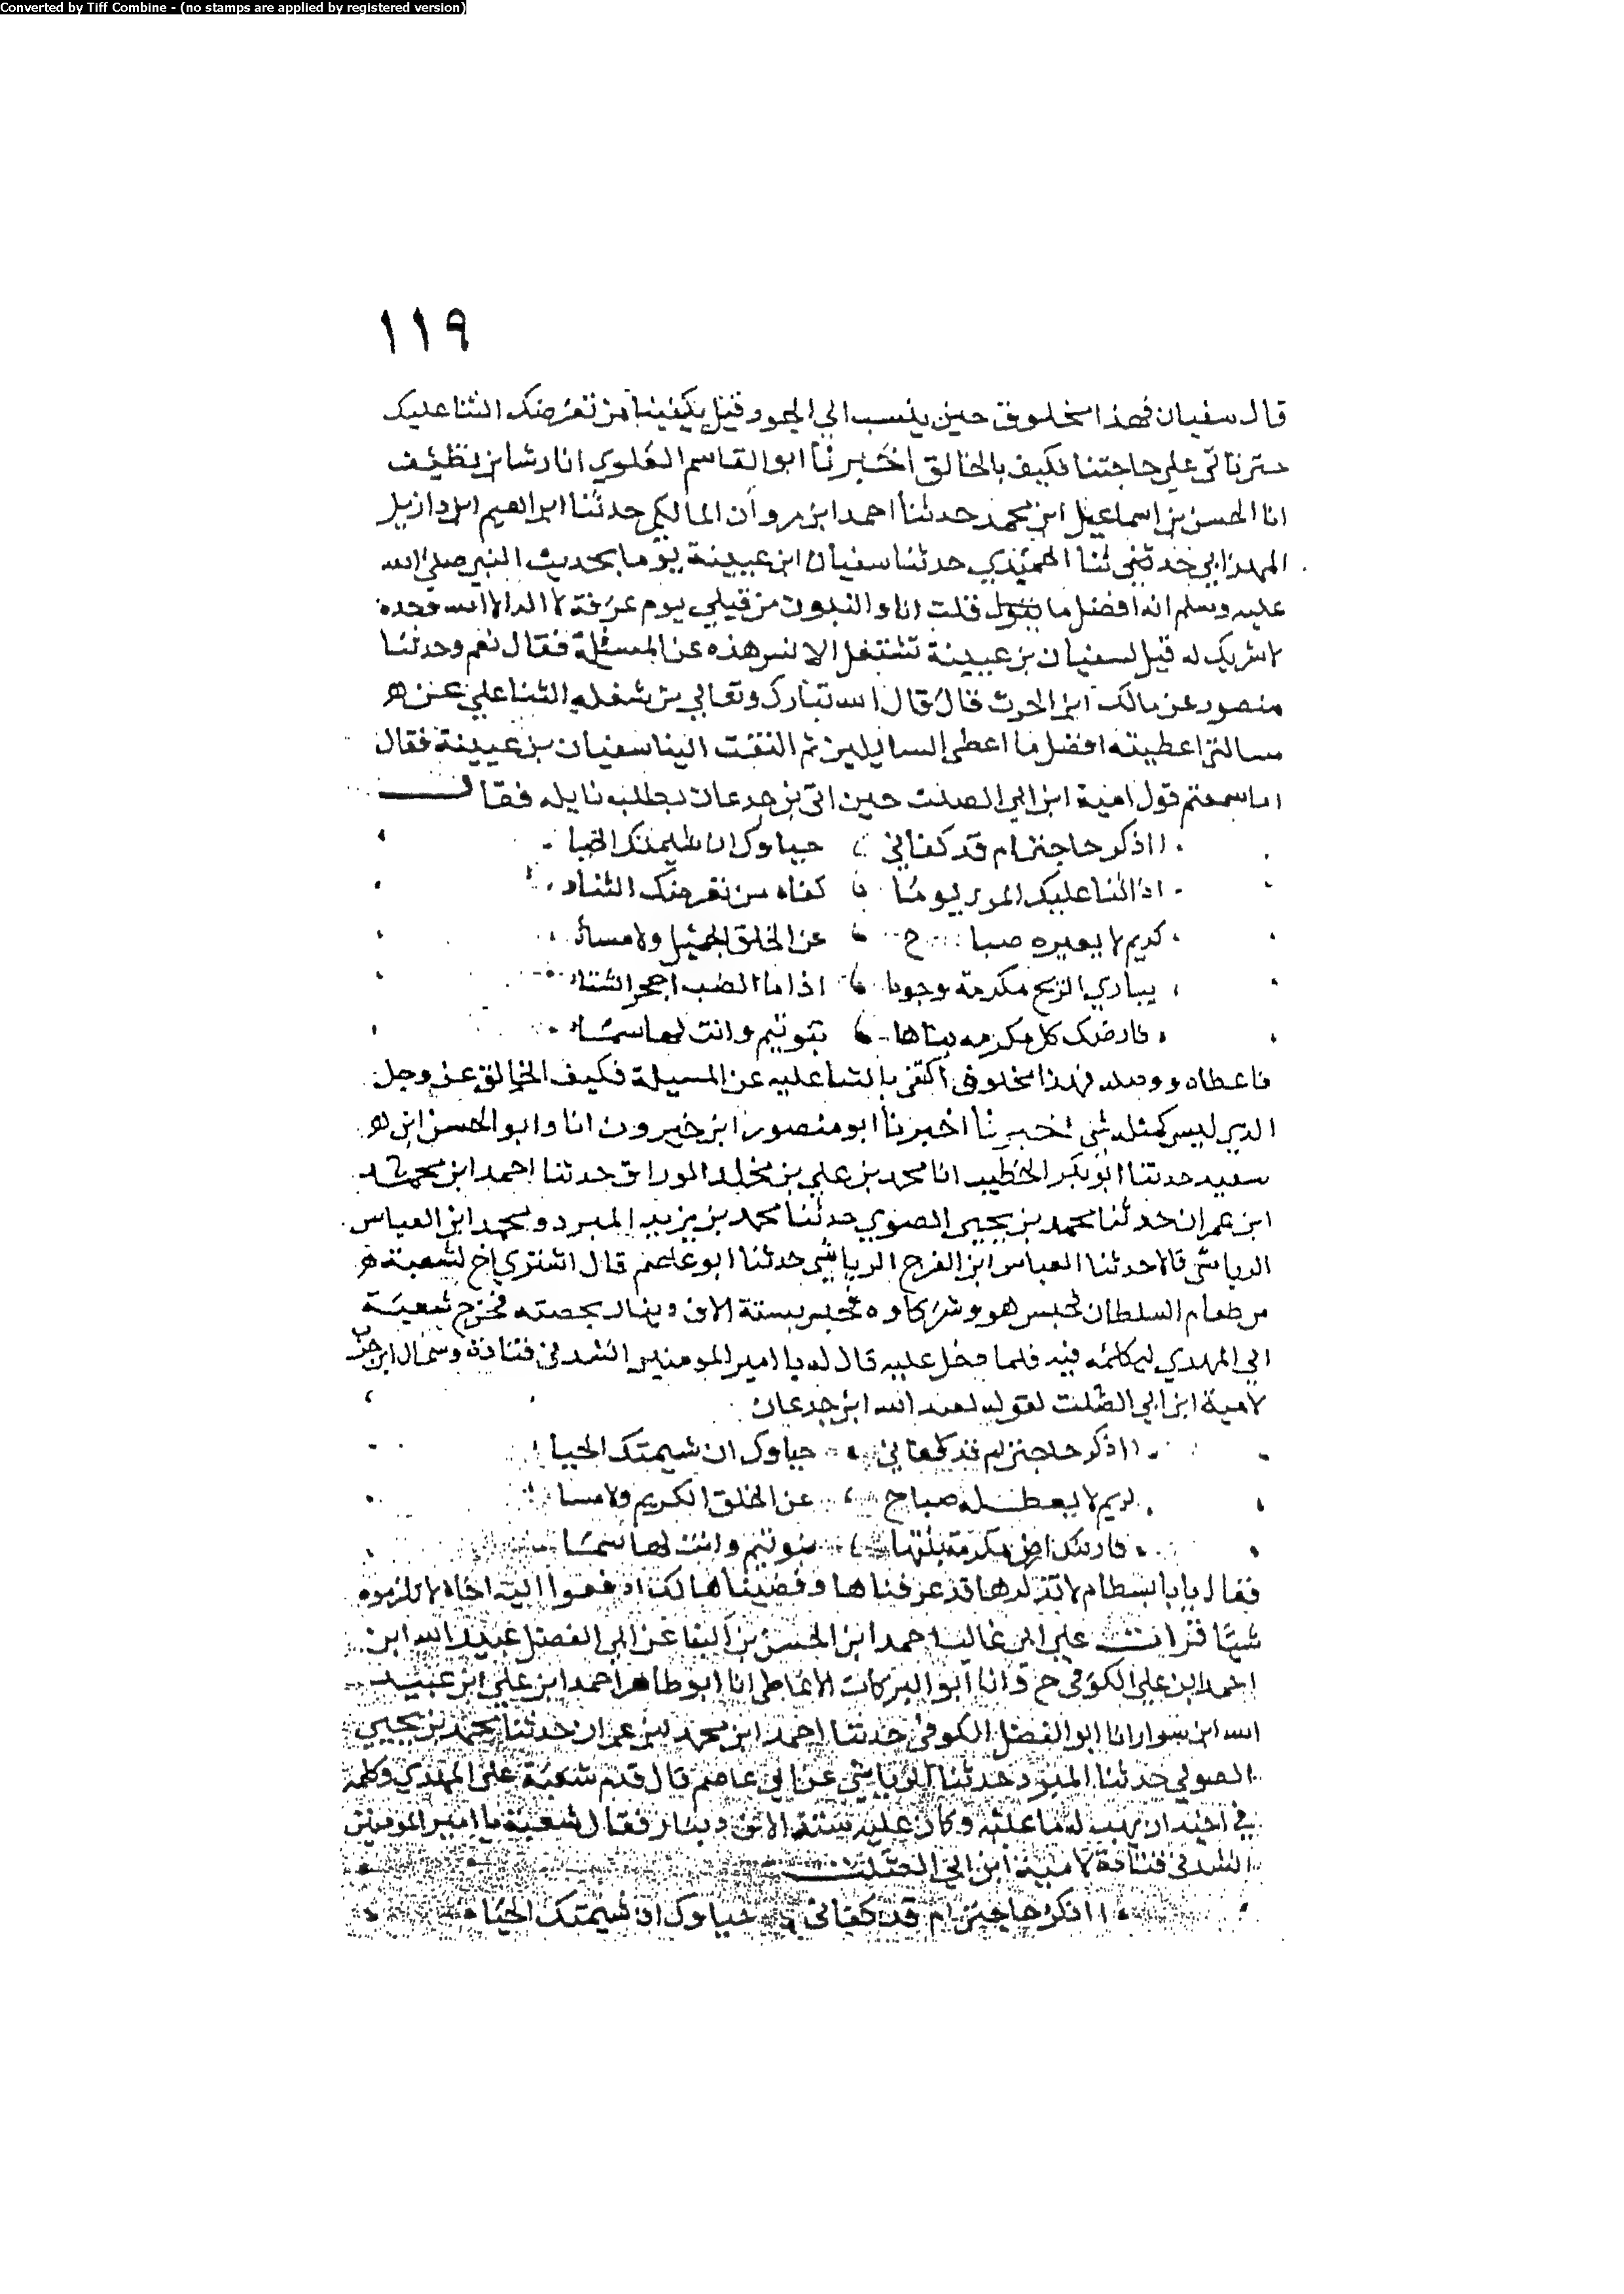 Converted by Tiff Combine - (no stamps are applied by registered version)
١١٩
قال سفيان فهذا مخلوق حين ينسب الي الجود قيل يكفينا من تعرضك الثنا عليك
حتي تاتي علي حاجتنا فكيف بالخالق اخبرنا ابو القاسم العلوي انا رشا بن نظيف
انا الحسن بن اسماعيل ابن محمد حدثنا احمد ابن مروان المالكي حدثنا ابراهيم ابن دازيل
الهمداني حدثني ثنا الحميدي حدثنا سفيان ابن عيينة يوما بحديث النبي صلي الله
عليه وسلم انه افضل ما قلت انا والنبون من قبلي يوم عرفة لا اله الا الله وحده
لا شريك له قيل لسفيان بن عيينة تشتغل الا لنس هذه عن المسئلة فقال نعم وحدثنا
منصور عن مالك ابن الحرث قال قال الله تبارك وتعالي من شغله الثنا علي عن
مسالتي اعطيته افضل ما اعطي السايلين ثم التفت الينا سفيان بن عيينة فقال
اما سمعتم قول امية ابن ابي الصلت حين اتي بن جدعان يطلب نايله فقال
ااذكر حاجتي ام قد كفاني حياوك ان شيمتك الحيا
اذا اثنا عليك المر يوما كفاه من تعرضك الثناء
كريم لا يغيره صباح عن الخلق الجميل ولا مساء
يباري الريح مكرمة وجودا اذا ما الضب اجحر الشتاء
فارضك كل مكرمه بناها بنو تيم وانت لها سماء
فاعطاه ووصله فهذا مخلوق اكتفي بالثنا عليه عن المسيلة فكيف الخالق عز وجل
الذي ليس كمثله شي اخبرنا ابو منصور ابن خيرون انا وابو الحسن ابن
سعيد حدثنا ابو بكر الخطيب انا محمد بن علي بن مخلد الوراق حدثنا احمد ابن محمد
ابن عمران حدثنا محمد بن يحيي الصوي حدثنا محمد بن يزيد المبرد ومحمد ابن العباس
الرياشي قالا حدثنا العباس ابن الفرج الرياشي حدثنا ابو عاصم قال اشتري اخ لشعبة
من طعام السلطان فحبس هو وشركاوه فحبس بستة الاف دينار بحصته فخرج شعبة
الي المهدي ليكلمه فيه فلما دخل عليه قال له يا امير المومنين انشدني قتادة وسماك ابن حرب
لامية ابن ابي الصلت لقوله لعبد الله ابن جدعان
ااذكر حاجتي ام قد كفاني حياوك ان شيمتك الحيا
كريم لا يعطله صباح عن الخلق الكريم ولا مسا
فارضك ارض مكرمة بنتها بنو تيم وانت لها سما
فقال يا با بسطام لا تذكرها قد عرفناها وقضيناها لك ادفعوا اليه اخاه لا تلزموه
شيا قرات علي ابي غالب احمد ابن الحسن بن البنا عن ابي الفضل عبيد الله ابن
احمد ابن علي الكوفي ح وانا ابو البركات الانماطي انا ابو طاهر احمد ابن علي ابن عبيد
الله ابن سوار انا ابو الفضل الكوفي حدثنا احمد ابن محمد بن عمران حدثنا محمد بن يحيي
الصولي حدثنا المبرد حدثنا الرياشي عن ابي عاصم قال قدم شعبة علي المهدي وكلمه
في اخيه ان يهب له ما عليه وكان عليه ستة الاف دينار فقال شعبة يا امير المومنين
انشدني قتادة لامية ابن ابي الصلت
ااذكر حاجتي ام قد كفاني حياوك ان شيمتك الحيا